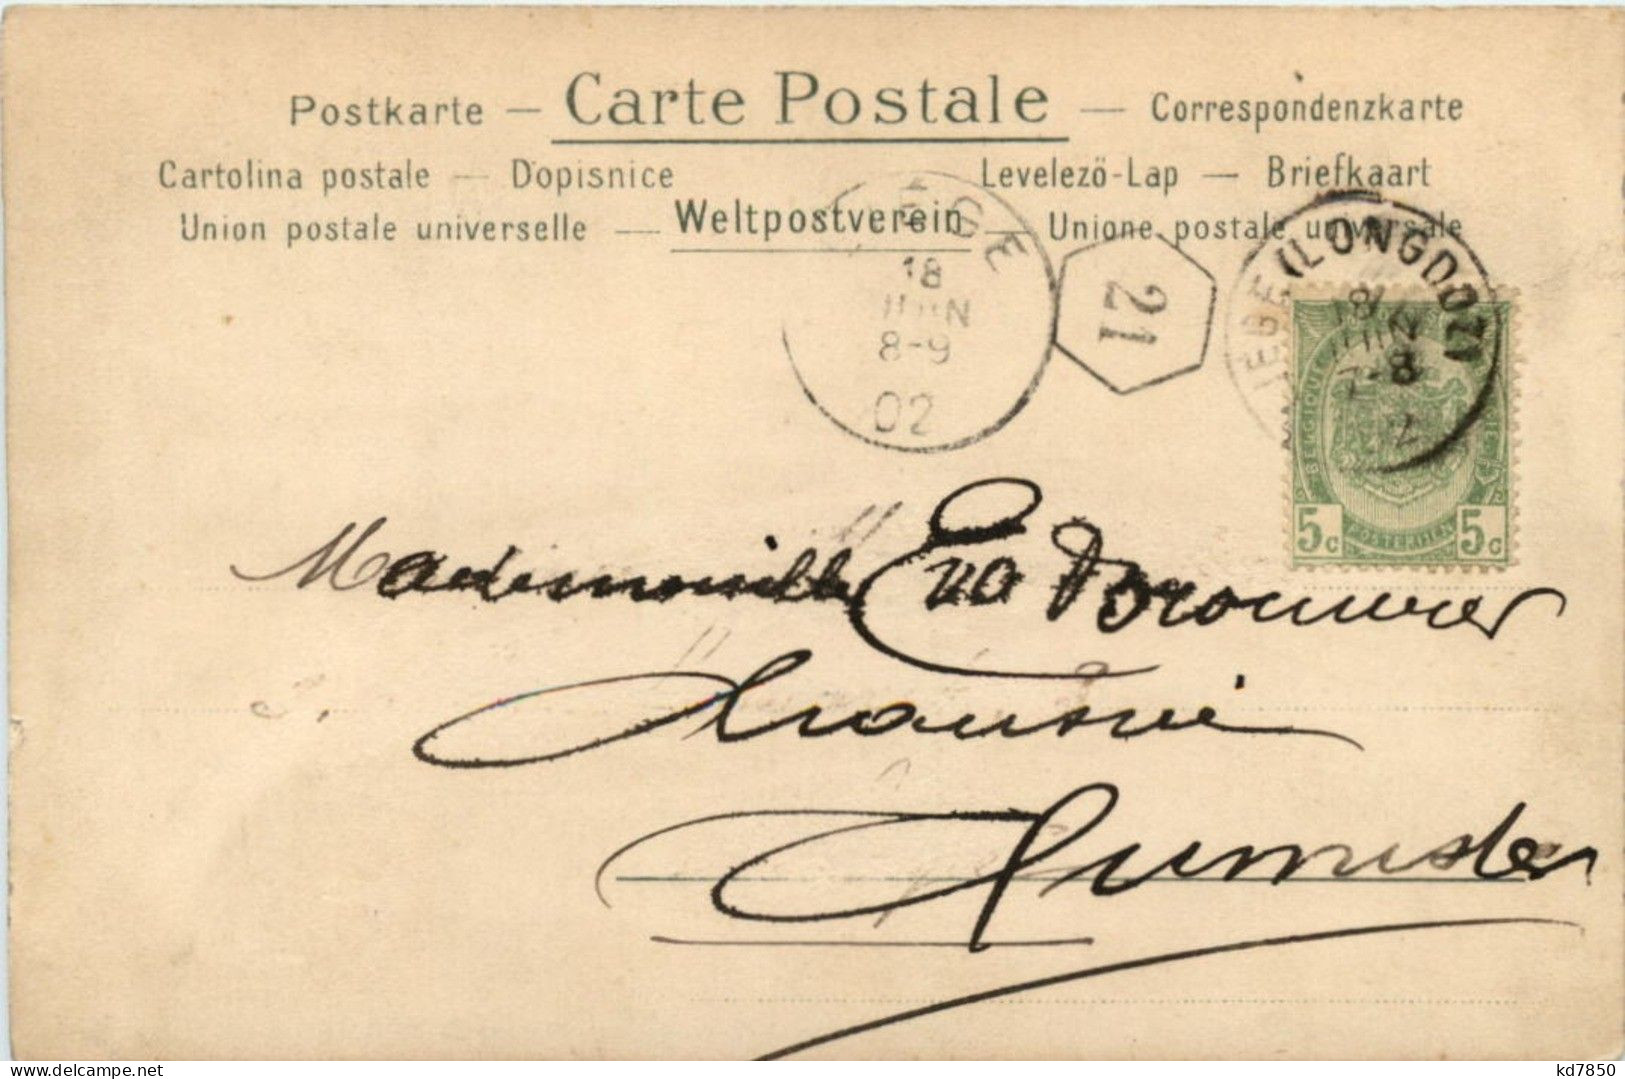 Postkarte — Carte Postale — Correspondenzkarte
Cartolina postale — Dopisnice Levelezö-Lap — Briefkaart
Union postale universelle — Weltpostverein — Unione postale universale
18
JUIN
8-9
02
21
(LONGDOZ)
18
JUIN
7-8
2
BELGIQUE
POSTERIJEN
5c 5c
Mademoiselle Eva Brouwer
kd7850